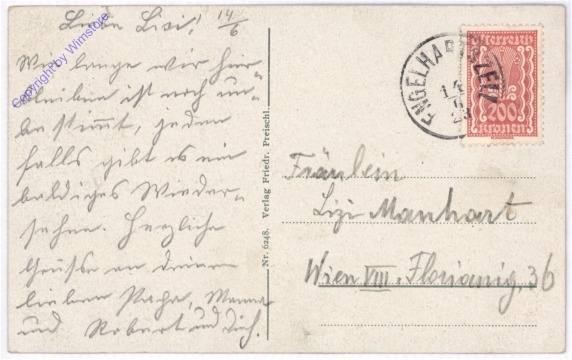 Liebe Lisi! 14/6
Wie lange wir hier
bleiben ist noch un-
bestimmt, jeden
falls gibt es ein
baldiges Wieder-
sehen. Herzliche
Grüsse an deinen
lieben Papa, Mama
und Robert und dich.
Copyright by Wimstore
Nr. 6248. Verlag Friedr. Preischl.
ENGELHARTSZELL
14
6
23
Österreich
200
Kronen
Fräulein
Lizi Manhart
Wien VIII. Florianig. 36